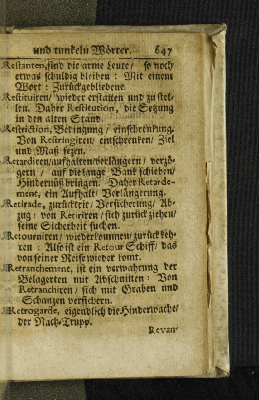 und tunkeln Wörter. 647
Restanten, sind die arme Leute / so noch
etwas schuldig bleiben : Mit einem
Wort : Zurückgebliebene.
Restituiren / wieder erstatten und zustel-
len. Daher Restitution, die Setzung
in den alten Stand.
Restriction, Bedingung / einschrenkung.
Von Restringiren / einschrenken / Ziel
und Maß sezen.
Retardiren / aufhalten / verlängern / verzö-
gern / auf die lange Bank schieben /
Hindernüß bringen. Daher Retarde-
ment, ein Aufhalt / Verlängerung.
Retirade, zurücktrit / Versicherung / Ab-
zug : von Retiriren / sich zurück ziehen /
seine Sicherheit suchen.
Retourniren / wiederkommen / zurück keh-
ren : Also ist ein Retour Schiff / das
von seiner Reise wieder komt.
Retranchement, ist ein verwahrung der
Belagerten mit Abschnitten : Von
Retranchiren / sich mit Graben und
Schanzen versichern.
Retrogarde, eigendlich die Hinderwache /
der Nach-Trupp.
Revan-